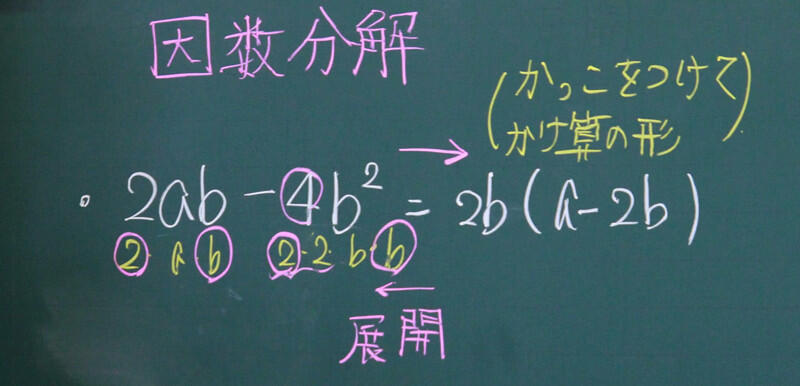 因数分解
(かっこをつけて
かけ算の形)
→
・ 2ab - 4b² = 2b(a-2b)
2・a・b 2・2・b・b
←
展開